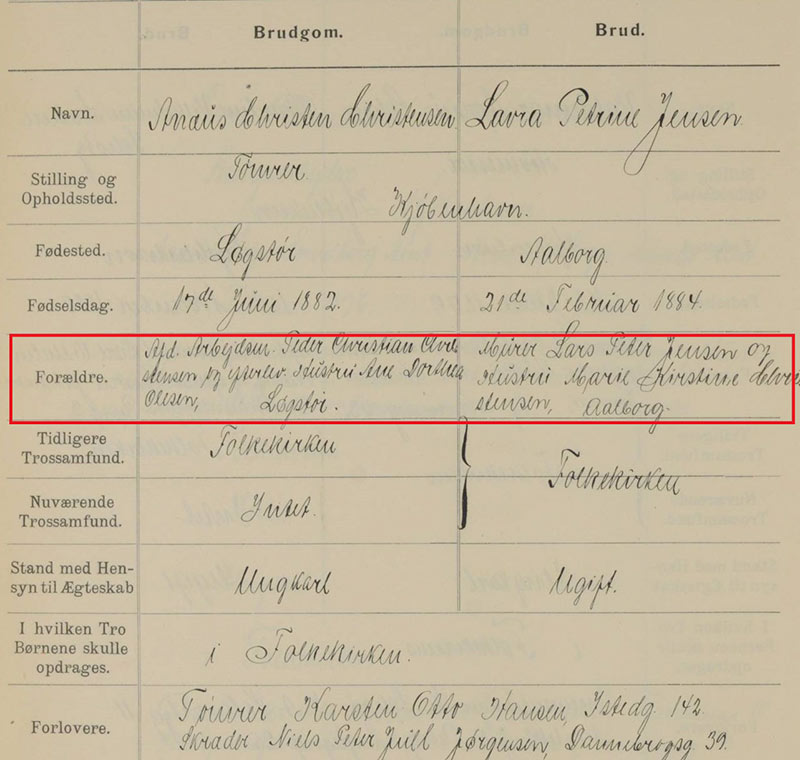 Brudgom. Brud.
Navn. Anæus Christen Christensen. Lavra Petrine Jensen.
Stilling og Opholdssted. Tömrer
Kjöbenhavn.
Fødested. Løgstör Aalborg.
Fødselsdag. 17de Juni 1882. 21de Februar 1884.
Forældre. Afd. Arbejdsm. Peder Christian Chri- Murer Lars Peter Jensen og
stensen og efterlev. Hustru Ane Dorthea Hustru Marie Kirstine Chri
Olesen, Løgstör. stensen, Aalborg.
Tidligere Trossamfund. Folkekirken
Folkekirken
Nuværende Trossamfund. Intet.
Stand med Hen-
syn til Ægteskab Ungkarl Ugift.
I hvilken Tro
Børnene skulle
opdrages. i Folkekirken.
Forlovere. Tömrer Karsten Otto Hansen, Istedg. 142.
Skrædder Niels Peter Juill Jørgensen, Dannebrogsg. 39.